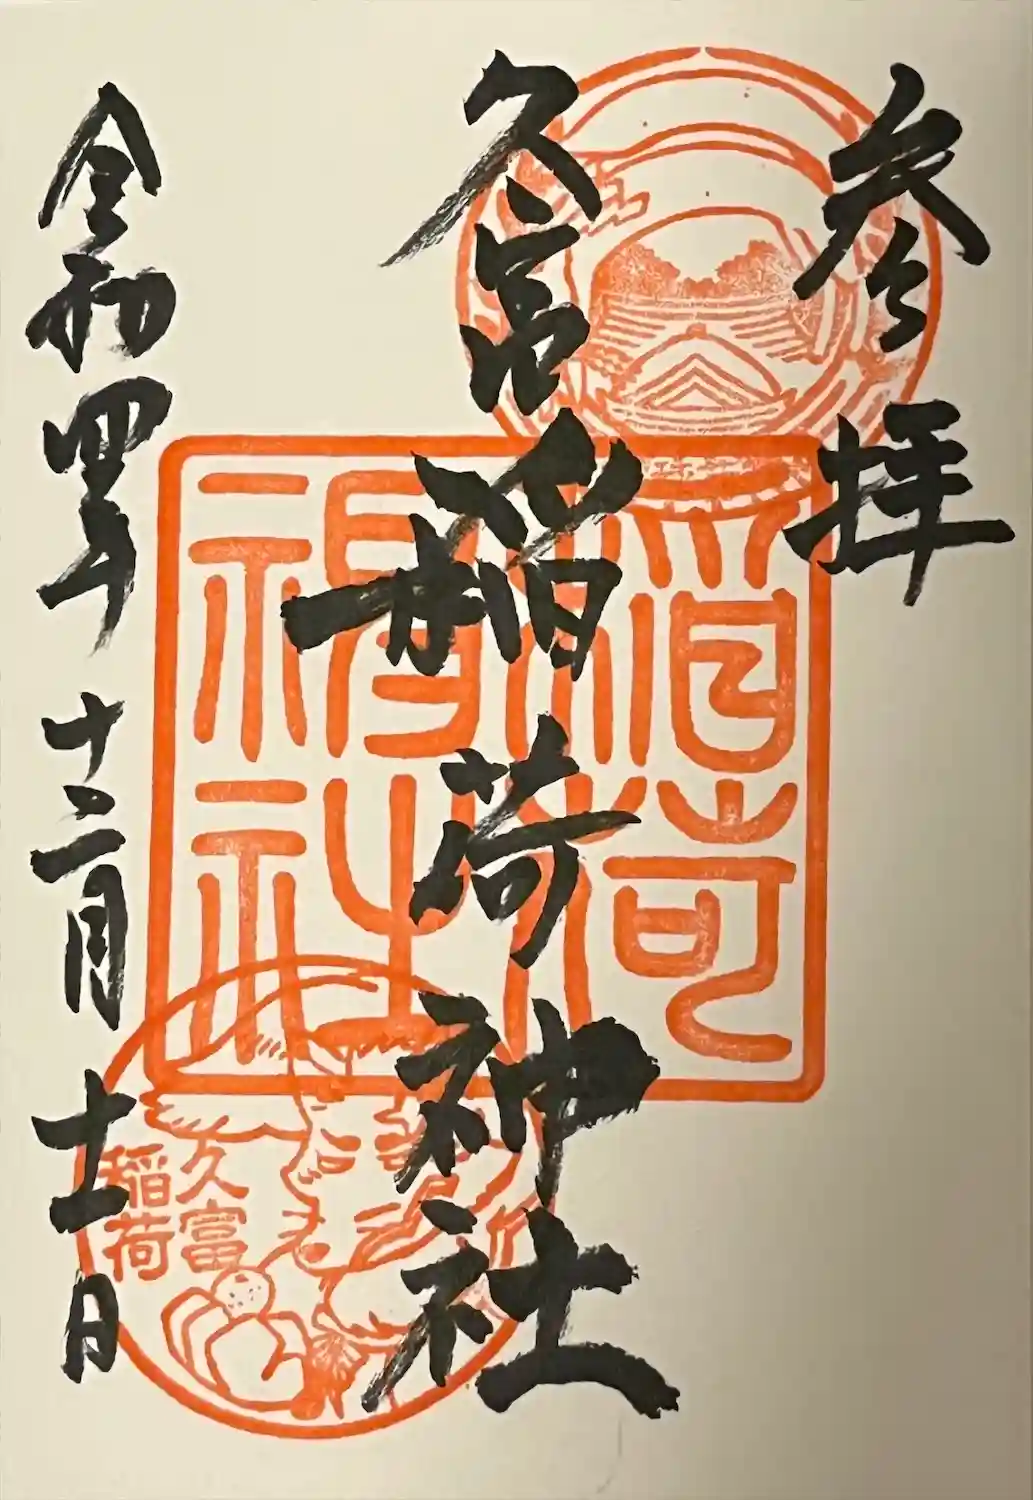 参拝
久富稲荷神社
稲荷
神社
令和四年十二月十一日
久富
稲荷